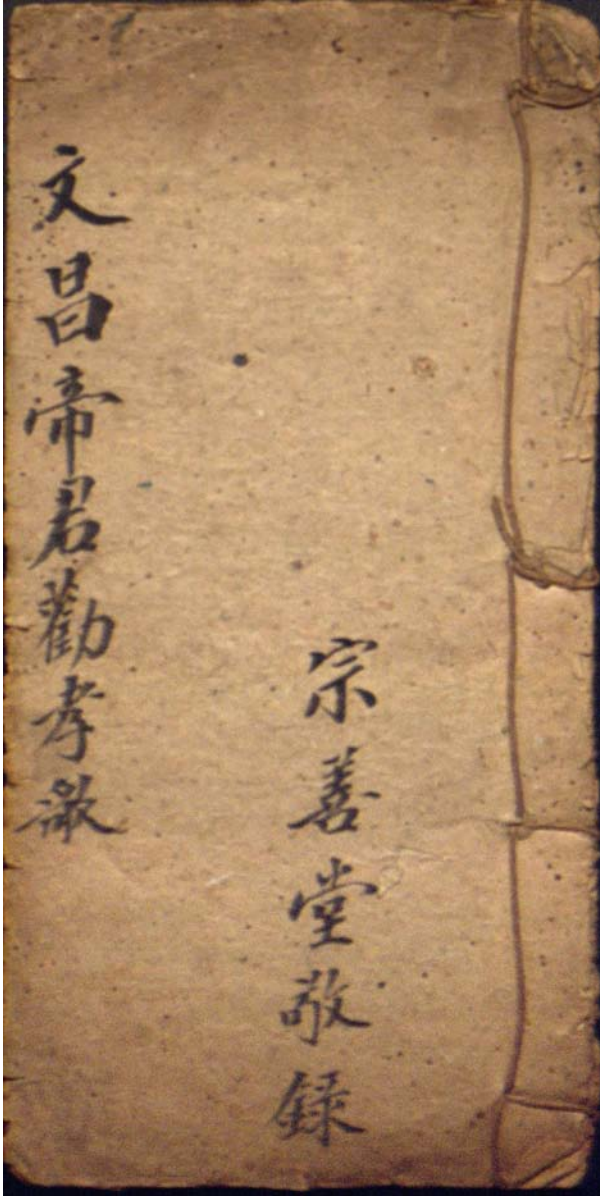 宗善堂敬録
文昌帝君勸孝